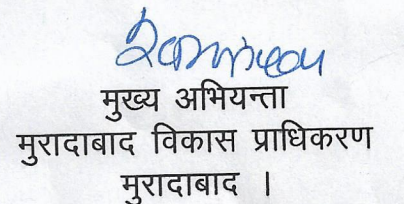 मुख्य अभियन्ता
मुरादाबाद विकास प्राधिकरण
मुरादाबाद ।